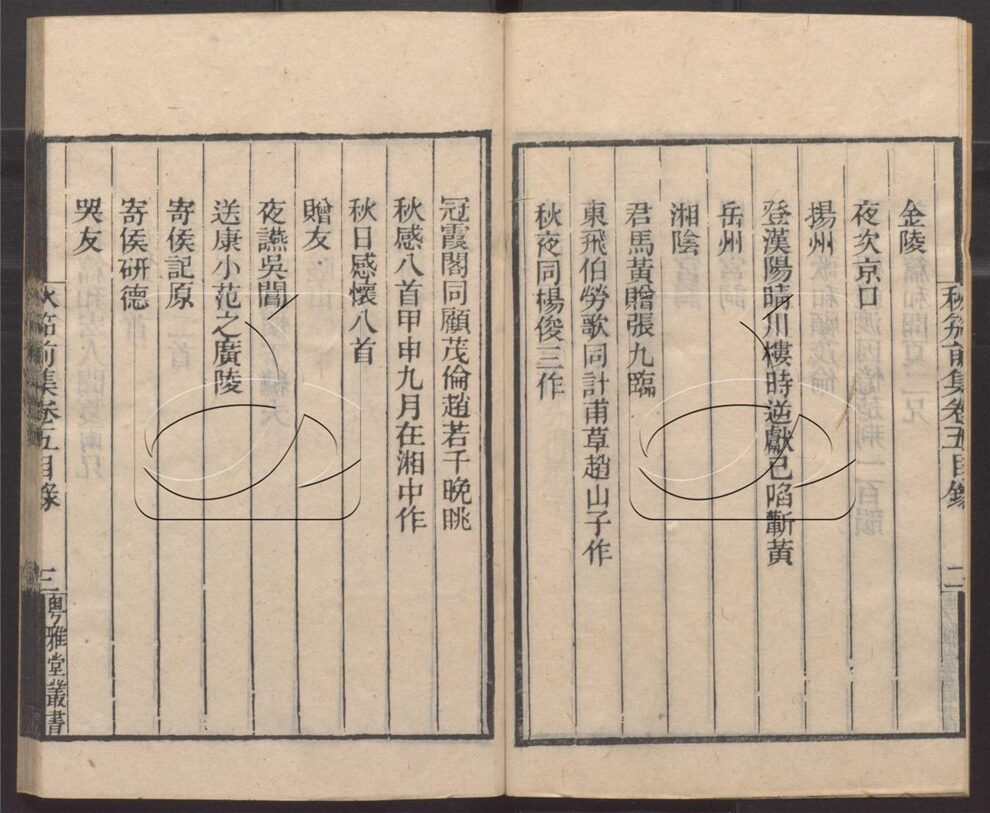 金陵
夜次京口
揚州
登漢陽晴川樓時逆獻已陷蘄黃
岳州
湘陰
君馬黃贈張九臨
東飛伯勞歌同計甫草趙山子作
秋夜同楊俊三作
秋笳前集卷五目錄
二
冠霞閣同顧茂倫趙若千晚眺
秋感八首甲申九月在湘中作
秋日感懷八首
贈友
夜讌吳閶
送康小范之廣陵
寄侯記原
寄侯研德
哭友
秋笳前集卷五目錄
三
粵雅堂叢書